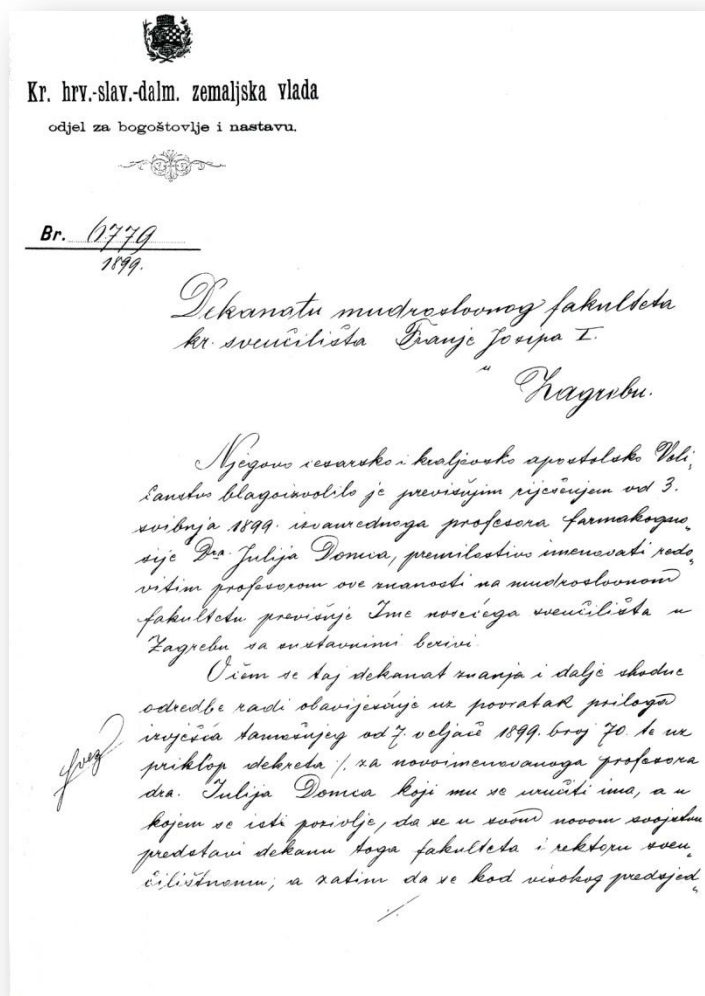 Kr. hrv.-slav.-dalm. zemaljska vlada
odjel za bogoštovlje i nastavu.
Br. 6779
1899.
Dekanatu mudroslovnog fakulteta
kr. sveučilišta Franje Josipa I.
u
Zagrebu.
Njegovo cesarsko i kraljevsko apostolsko Veli„
čanstvo blagoizvolilo je previšnjim riješenjem od 3.
svibnja 1899. izvanrednoga profesora farmakogno„
sije Dra. Julija Domca, premilostivo imenovati redo„
vitim profesorom ove znanosti na mudroslovnom
fakultetu previšnje Ime nosećega sveučilišta u
Zagrebu sa sustavnimi berivi.
O čem se taj dekanat znanja i dalje shodne
odredbe radi obavješćuje uz povratak priloga
izvješća tamošnjeg od 7. veljače 1899. broj 70. te uz
priklop dekreta ./. za novoimenovanoga profesora
dra. Julija Domca koji mu se uručiti ima, a u
kojem se isti pozivlje, da se u svom novom svojstvu
predstavi dekanu toga fakulteta i rektoru sveu„
čilištnomu; a zatim da se kod visokog predsjed„
./.